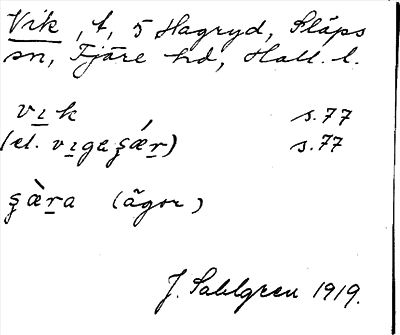 Vik, t, 5 Hagryd, Släps
sn, Fjäre hd, Hall. l.
vı̲k s.77
(el. vı̲gaʂǽr̲) s.77
ʂæ̀r̲a (ägor)
J. Sahlgren 1919.